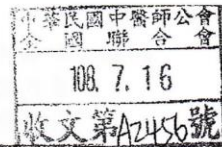 中華民國中醫師公會
全國聯合會
108. 7. 16
收文第A2456號